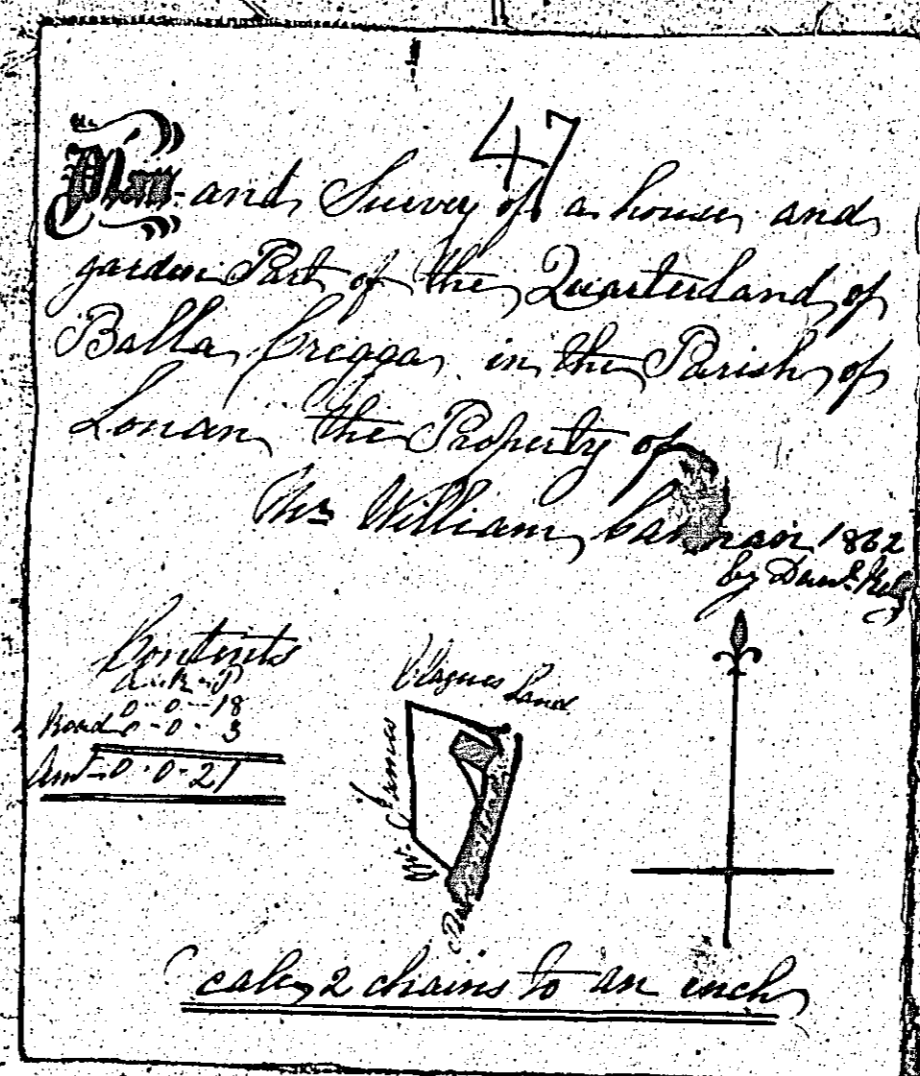 47
Plan and Survey of a house and
garden Part of the Quarterland of
Balla Cregga in the Parish of
Lonan the Property of
Mr William 1862
by
Contents
A - R - P
0 - 0 - 18
Road 0 - 0 - 3
Amt 0 - 0 - 21
Land
Mr
Scale 2 chains to an inch